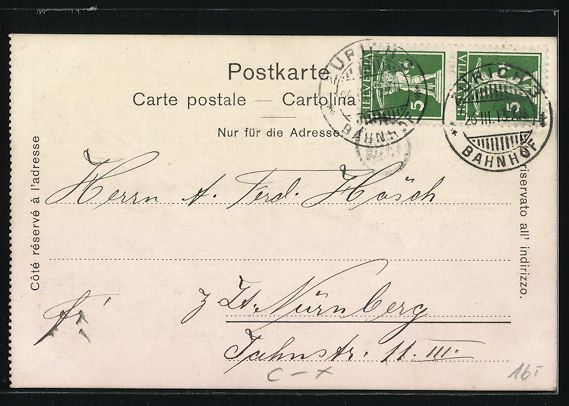 Postkarte
Carte postale — Cartolina
Nur für die Adresse
HELVETIA 5
HELVETIA 5
ZÜRICH
BAHNHOF
ZÜRICH
26.III.
BAHNHOF
Côté réservé à l'adresse
riservato all' indirizzo.
Herrn A. Ferd. Hösch
z. Zt. Nürnberg
Jahnstr. 11 III.
C – x
16-